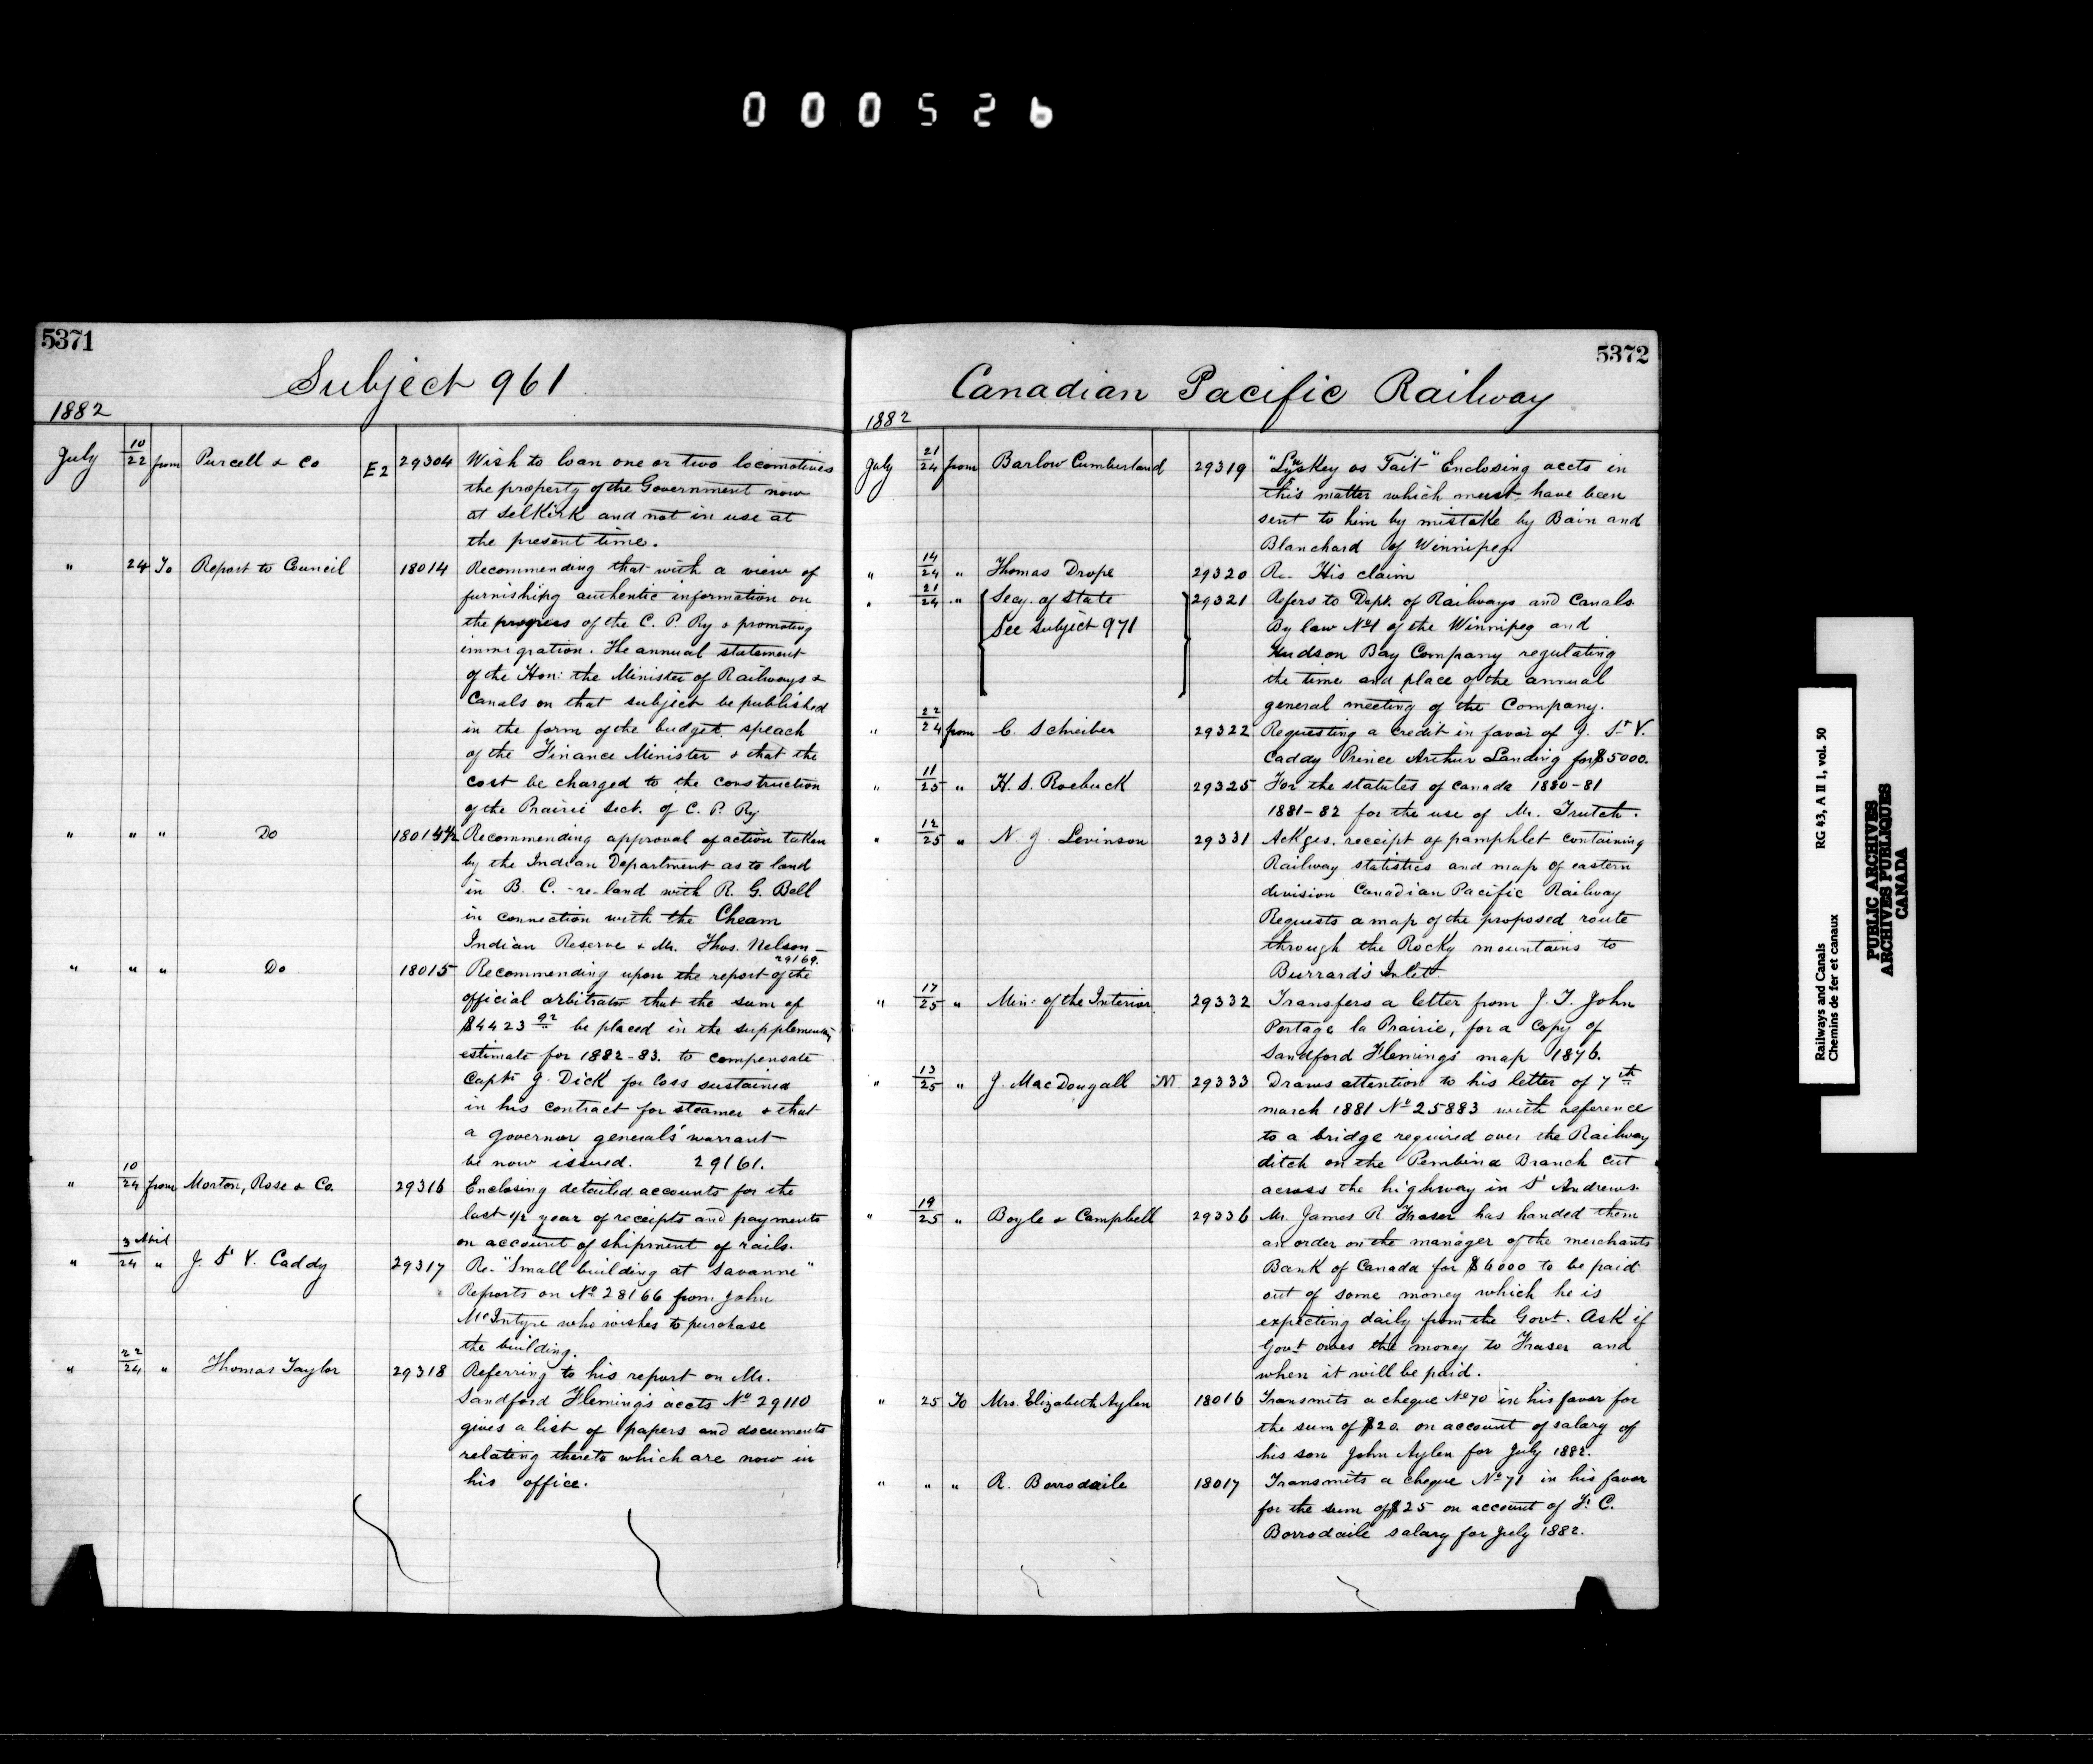 000526
5371
Subject 961
1882
July 10/22 from Purcell & Co E2 29304 Wish to loan one or two locomotives
the property of the Government now
at Selkirk and not in use at
the present time.
" 24 To Report to Council 18014 Recommending that with a view of
furnishing authentic information on
the progress of the C. P. Ry & promoting
immigration. The annual statement
of the Hon: the Minister of Railways &
Canals on that subject be published
in the form of the budget speach
of the Finance Minister & that the
cost be charged to the construction
of the Prairie Sect. of C. P. Ry
" " " Do 18014½ Recommending approval of action taken
by the Indian Department as to land
in B. C. - re-land with R. G. Bell
in connection with the Cheam
Indian Reserve & Mr. Thos. Nelson —
29169.
" " " Do 18015 Recommending upon the report of the
official arbitrator that the sum of
$4423 92 be placed in the supplementary
estimate for 1882-83. to compensate
Captn J. Dick for loss sustained
in his contract for steamer & that
a governor generals' warrant
be now issued. 29161.
" 10/24 from Morton, Rose & Co. 29316 Enclosing detailed accounts for the
last 1/2 year of receipts and payments
on account of shipment of rails.
" 3 April/24 " J. St V. Caddy 29317 Re- "Small building at Savanne"
Reports on No 28166 from John
McIntyre who wishes to purchase
the building.
" 22/24 " Thomas Taylor 29318 Referring to his report on Mr.
Sandford Fleming's accts No 29110
gives a list of papers and documents
relating thereto which are now in
his office.
5372
Canadian Pacific Railway
1882
July 21/24 from Barlow Cumberland 29319 "Lynskey vs Tait" Enclosing accts in
this matter which must have been
sent to him by mistake by Bain and
Blanchard of Winnipeg.
" 14/24 " Thomas Drope 29320 Re- His claim
" 21/24 " Secy. of State 29321 Refers to Dept. of Railways and Canals
See Subject 971 By law No 1 of the Winnipeg and
Hudson Bay Company regulating
the time and place of the annual
general meeting of the Company.
" 22/24 from C. Schreiber 29322 Requesting a credit in favor of J. St V.
Caddy Prince Arthur Landing for $5000.
" 11/25 " H. S. Roebuck 29325 For the statutes of Canada 1880-81
1881-82 for the use of Mr. Trutch.
" 12/25 " N. J. Levinson 29331 Ackges. receipt of pamphlet containing
Railway statistics and map of eastern
division Canadian Pacific Railway
Requests a map of the proposed route
through the Rocky mountains to
Burrard's Inlet.
" 17/25 " Min: of the Interior 29332 Transfers a letter from J. T. John
Portage la Prairie, for a Copy of
Sandford Flemings' map 1876.
" 13/25 " J. MacDougall M 29333 Draws attention to his letter of 7th
march 1881 No 25883 with reference
to a bridge required over the Railway
ditch on the Pembina Branch cut
across the highway in St Andrews.
" 19/25 " Boyle & Campbell 29336 Mr. James R. Fraser has handed them
an order on the manager of the merchants
Bank of Canada for $6000 to be paid
out of some money which he is
expecting daily from the Govt. Ask if
Govt owes the money to Fraser and
when it will be paid.
" 25 To Mrs. Elizabeth Aylen 18016 Transmits a cheque No 70 in his favor for
the sum of $20. on account of salary of
his son John Aylen for July 1882.
" " " R. Borrodaile 18017 Transmits a cheque No 71 in his favor
for the sum of $25 on account of F. C.
Borrodaile salary for July 1882.
Railways and Canals RG 43, A II 1, vol. 50
Chemins de fer et canaux
PUBLIC ARCHIVES
ARCHIVES PUBLIQUES
CANADA